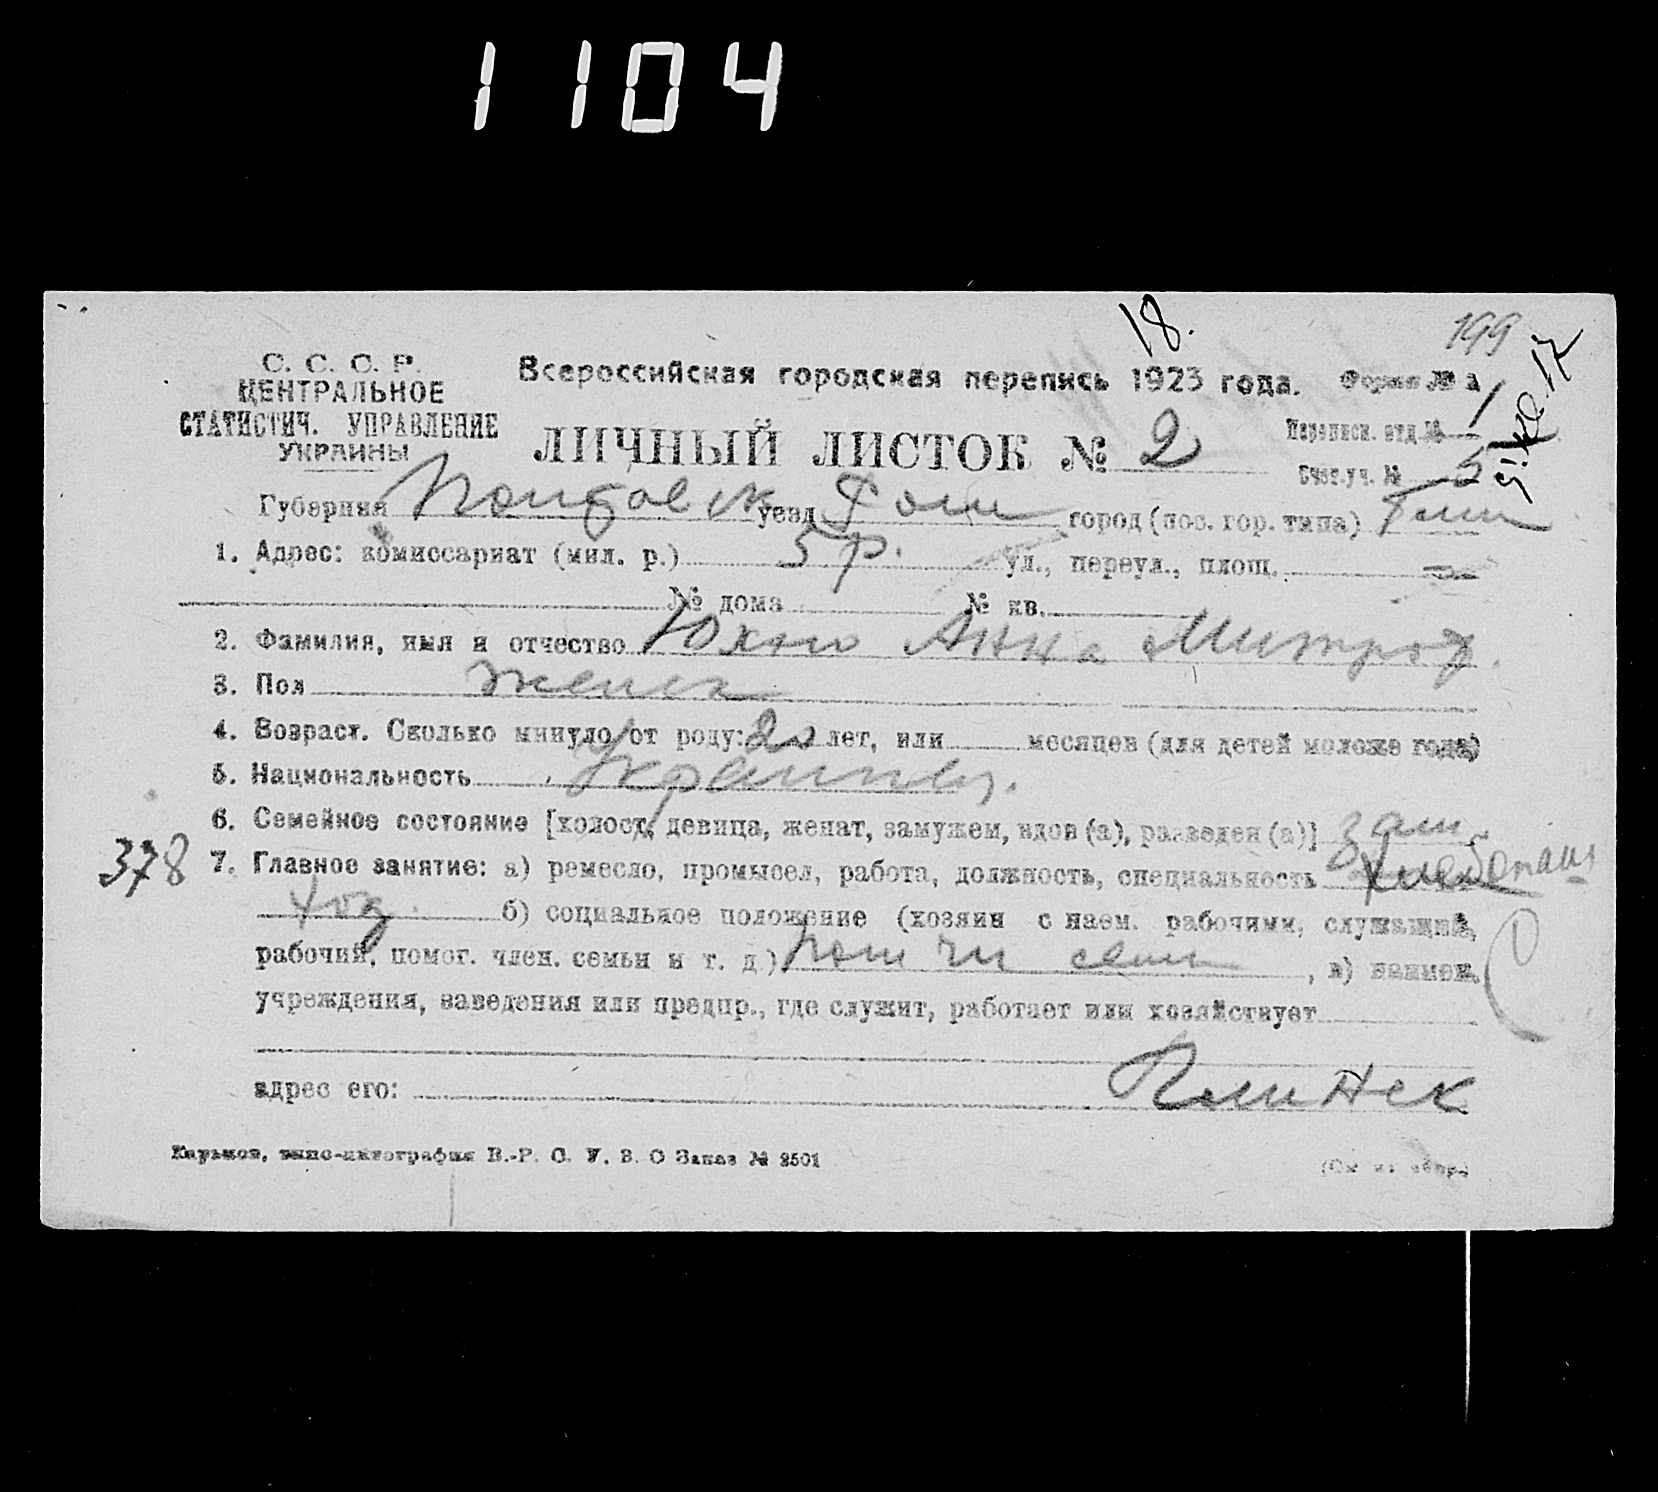 1104
18.
199
С. С. С. Р.
ЦЕНТРАЛЬНОЕ
СТАТИСТИЧ. УПРАВЛЕНИЕ
УКРАИНЫ
Всероссийская городская перепись 1923 года. Форма № а
ЛИЧНЫЙ ЛИСТОК № 2
Переписн. отд. № 1
Счет. уч. № 5
Губерния Полтавск уезд город (пос. гор. типа)
1. Адрес: комиссариат (мил. р.) 5 р. ул., переул., площ. —
№ дома № кв.
2. Фамилия, имя и отчество Юхно Анна Митроф.
3. Пол женск
4. Возраст. Сколько минуло от роду: 20 лет, или месяцев (для детей моложе года)
5. Национальность
6. Семейное состояние [холост, девица, женат, замужем, вдов (а), разведен (а)] зам
378
7. Главное занятие: а) ремесло, промысел, работа, должность, специальность хлебопаш
б) социальное положение (хозяин с наем. рабочими, служащий,
рабочий, помог. член. семьи и т. д.) пом чл семи, в) наимен.
учреждения, заведения или предпр., где служит, работает или хозяйствует
адрес его:
Харьков, типо-литография В.-Р. С. У. В. О Заказ № 2501
(См на обор.)